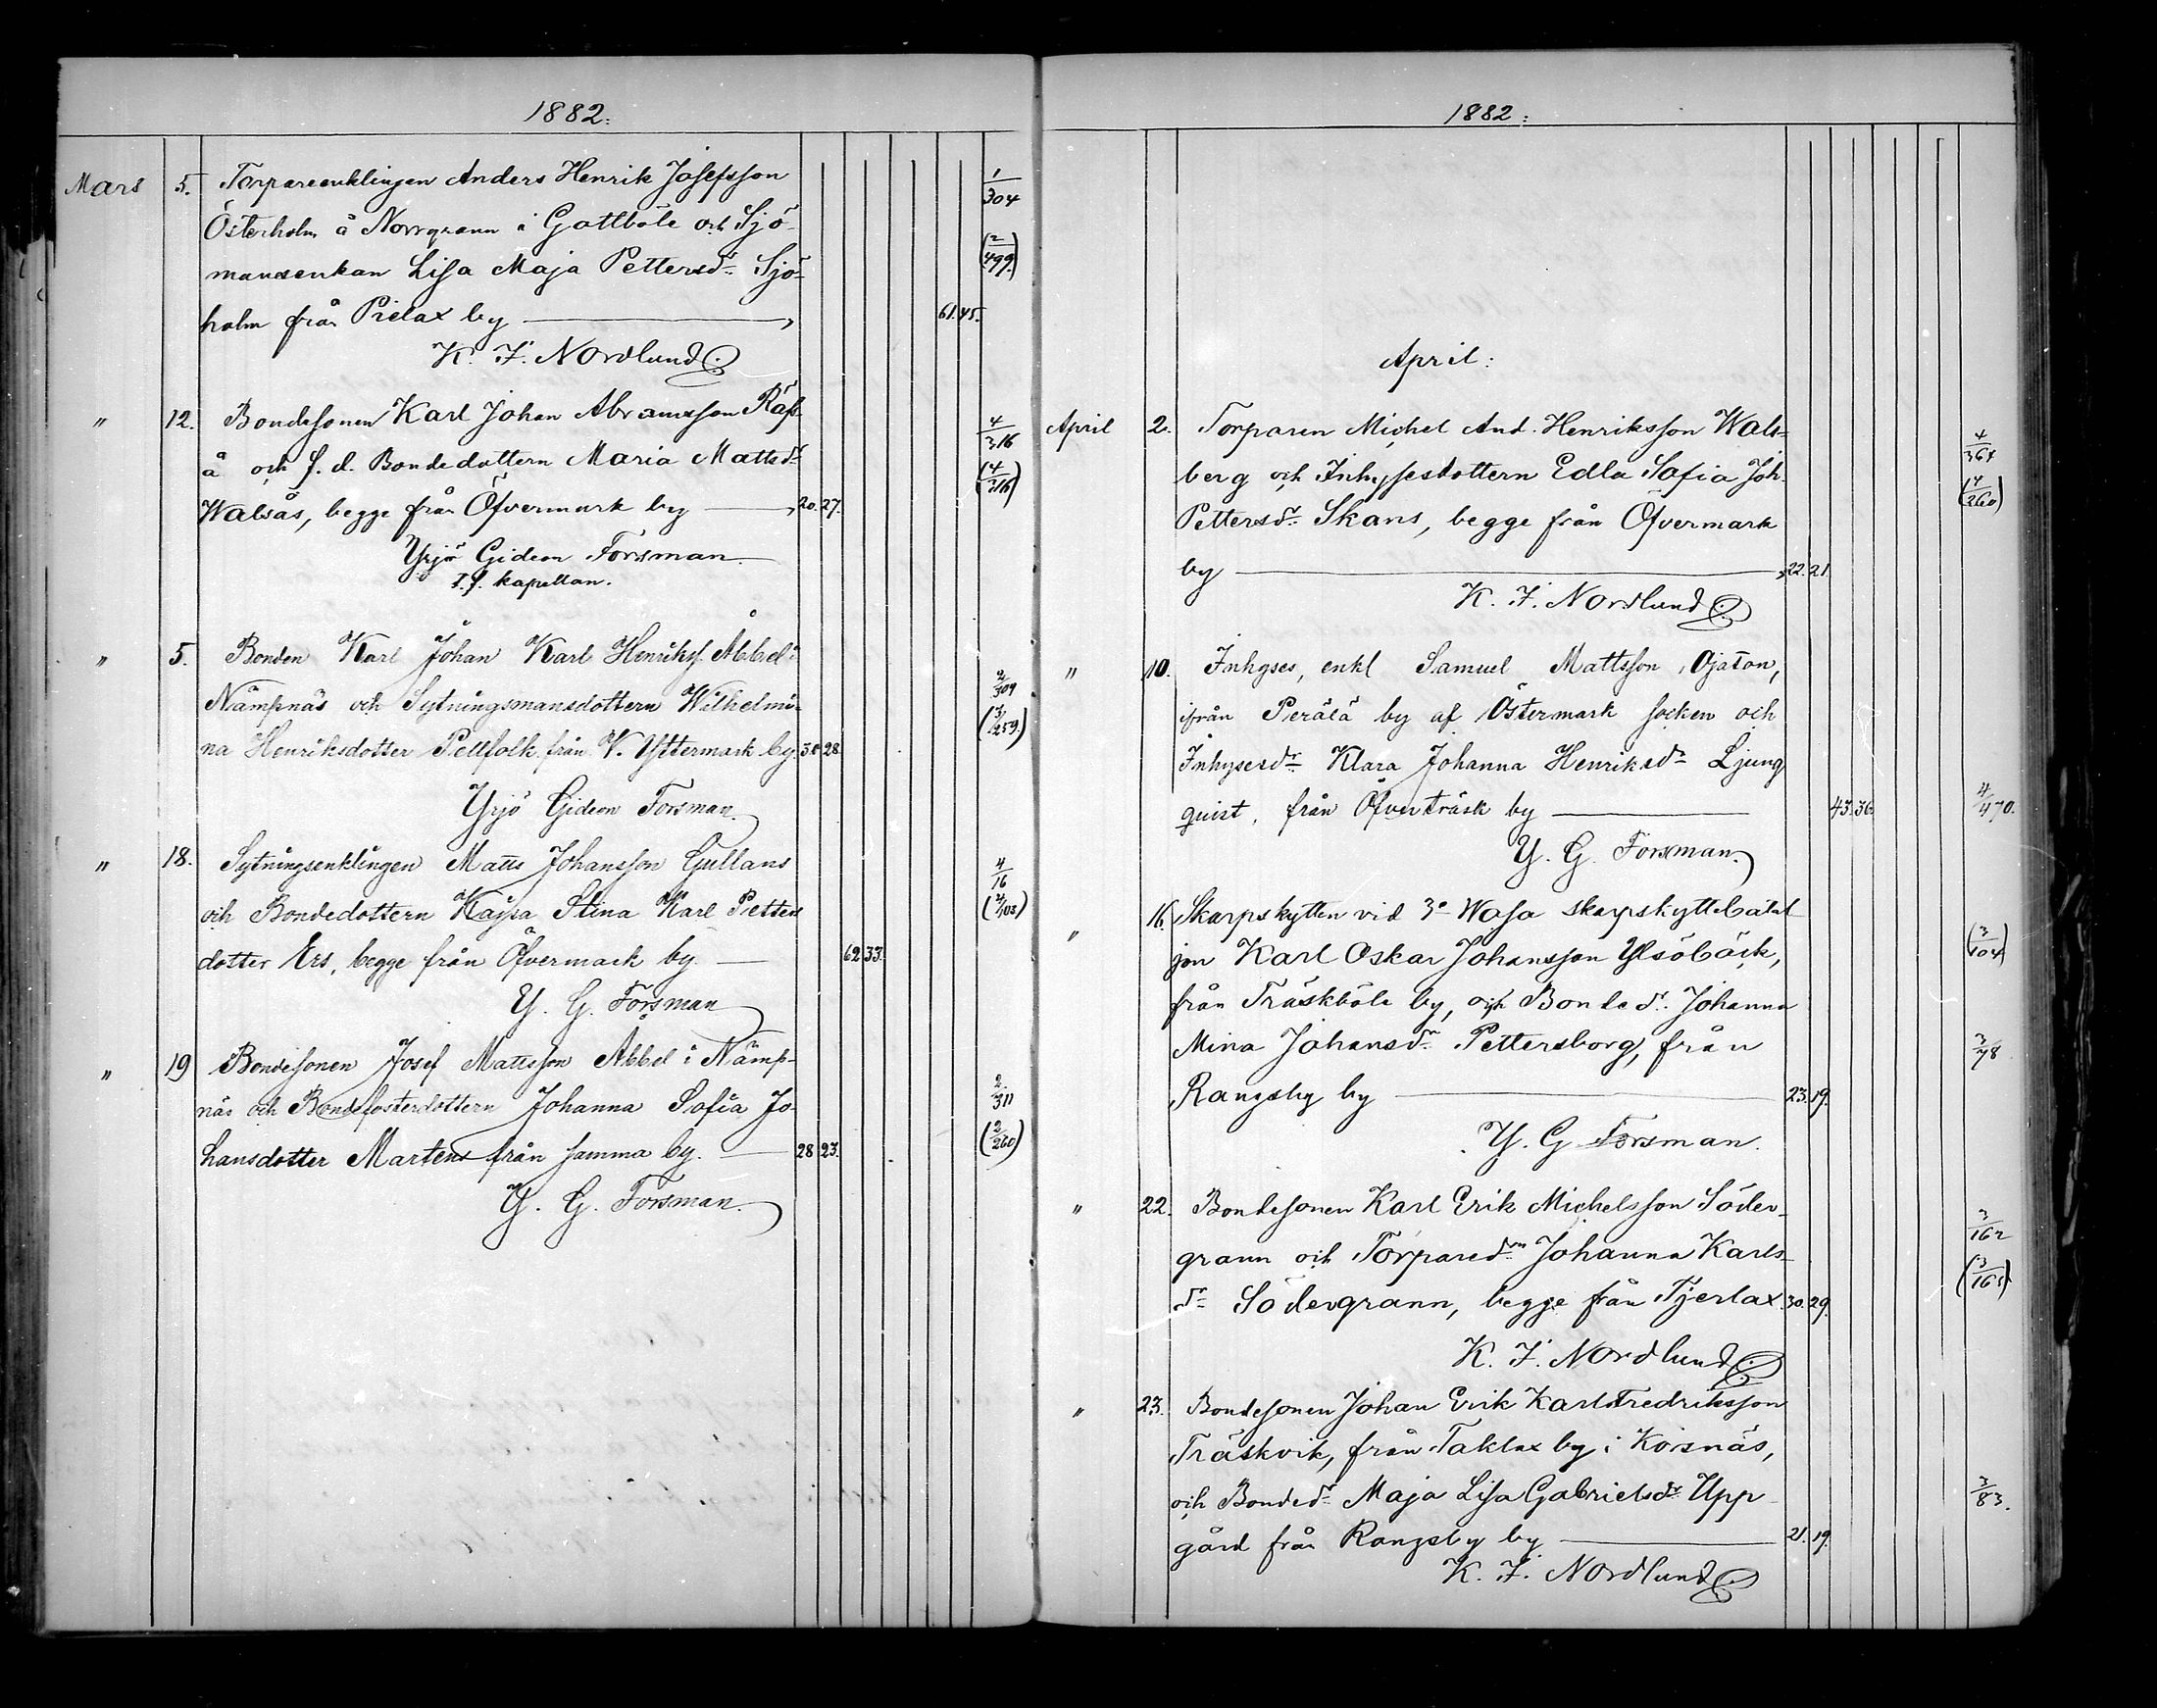 1882:
Mars 5. Torpareenklingen Anders Henrik Josefsson 1/304
Österholm å Norrgrann i Gottböle och Sjö- (2/499)
mansenkan Lisa Maja Pettersdr Sjö-
holm från Pielax by 61. 45.
K. F. Nordlund
" 12. Bondesonen Karl Johan Abramsson Räfs- 4/316
å och f. d. Bondedottern Maria Mattsdr (4/216)
Walsås, begge från Öfvermark by 20. 27.
Yrjö Gideon Forsman
T. f. kapellan.
" 5. Bonden Karl Johan Karl Henrikss. Abbel i 2/309
Nämpnäs och Sytningsmansdottern Wilhelmi- (3/259)
na Henriksdotter Pellfolk från V. Yttermark by. 38 28
Yrjö Gideon Forsman.
" 18. Sytningsenklingen Matts Johansson Gullans 4/16
och Bondedottern Kajsa Stina Karl Petters
dotter Ers, begge från Öfvermark by. 62 33.
Y. G. Forsman
" 19 Bondesonen Josef Mattsson Abbel i Nämp- 2/311
näs och Bondefosterdottern Johanna Sofia Jo-
hansdotter Martens från samma by. 28 23. (2/260)
Y. G. Forsman.
1882:
April:
April 2. Torparen Michel And. Henriksson Wals- 4/364
berg och Inhysesdottern Edla Sofia Joh. (4/260)
Pettersdr Skans, begge från Öfvermark
by 22. 21.
K. F. Nordlund
" 10. Inhyses, enkl Samuel Mattsson Ojaton,
ifrån Perälä by af Östermark socken och
Inhysesdr Klara Johanna Henriksdr Ljung
quist, från Öfverträsk by 43. 36. 4/470.
Y. G. Forsman.
" 16. Skarpskytten vid 3e Wasa skarpskyttebatal
jon Karl Oskar Johansson Ylsöbäck, (3/104)
från Träskböle by, och Bondedr. Johanna
Mina Johansdr Pettersborg, från 3/78
Rangsby by 23. 19.
Y. G Forsman.
" 22. Bondesonen Karl Erik Michelsson Söder- 3/162
grann och Torparedrn Johanna Karls-
dr Södergrann, begge från Tjerlax. 30. 29. (3/165)
K. F. Nordlund
" 23. Bondesonen Johan Erik Karl Fredriksson
Träskvik, från Taklax by i Korsnäs,
och Bondedr Maja Lisa Gabrielsdr Upp- 3/83.
gård från Rangsby by 21. 19.
K. F. Nordlund